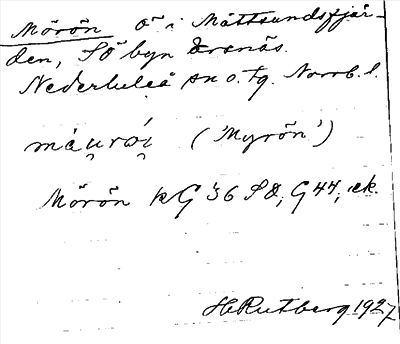 Mörön ö i Måttsundsfjär-
den, SÖ byn Ersnäs.
Nederluleå sn o. tg. Norrb. l.
('Myrön')
Mörön kG 36 SO, G 44, ek.
H Rutberg 1927